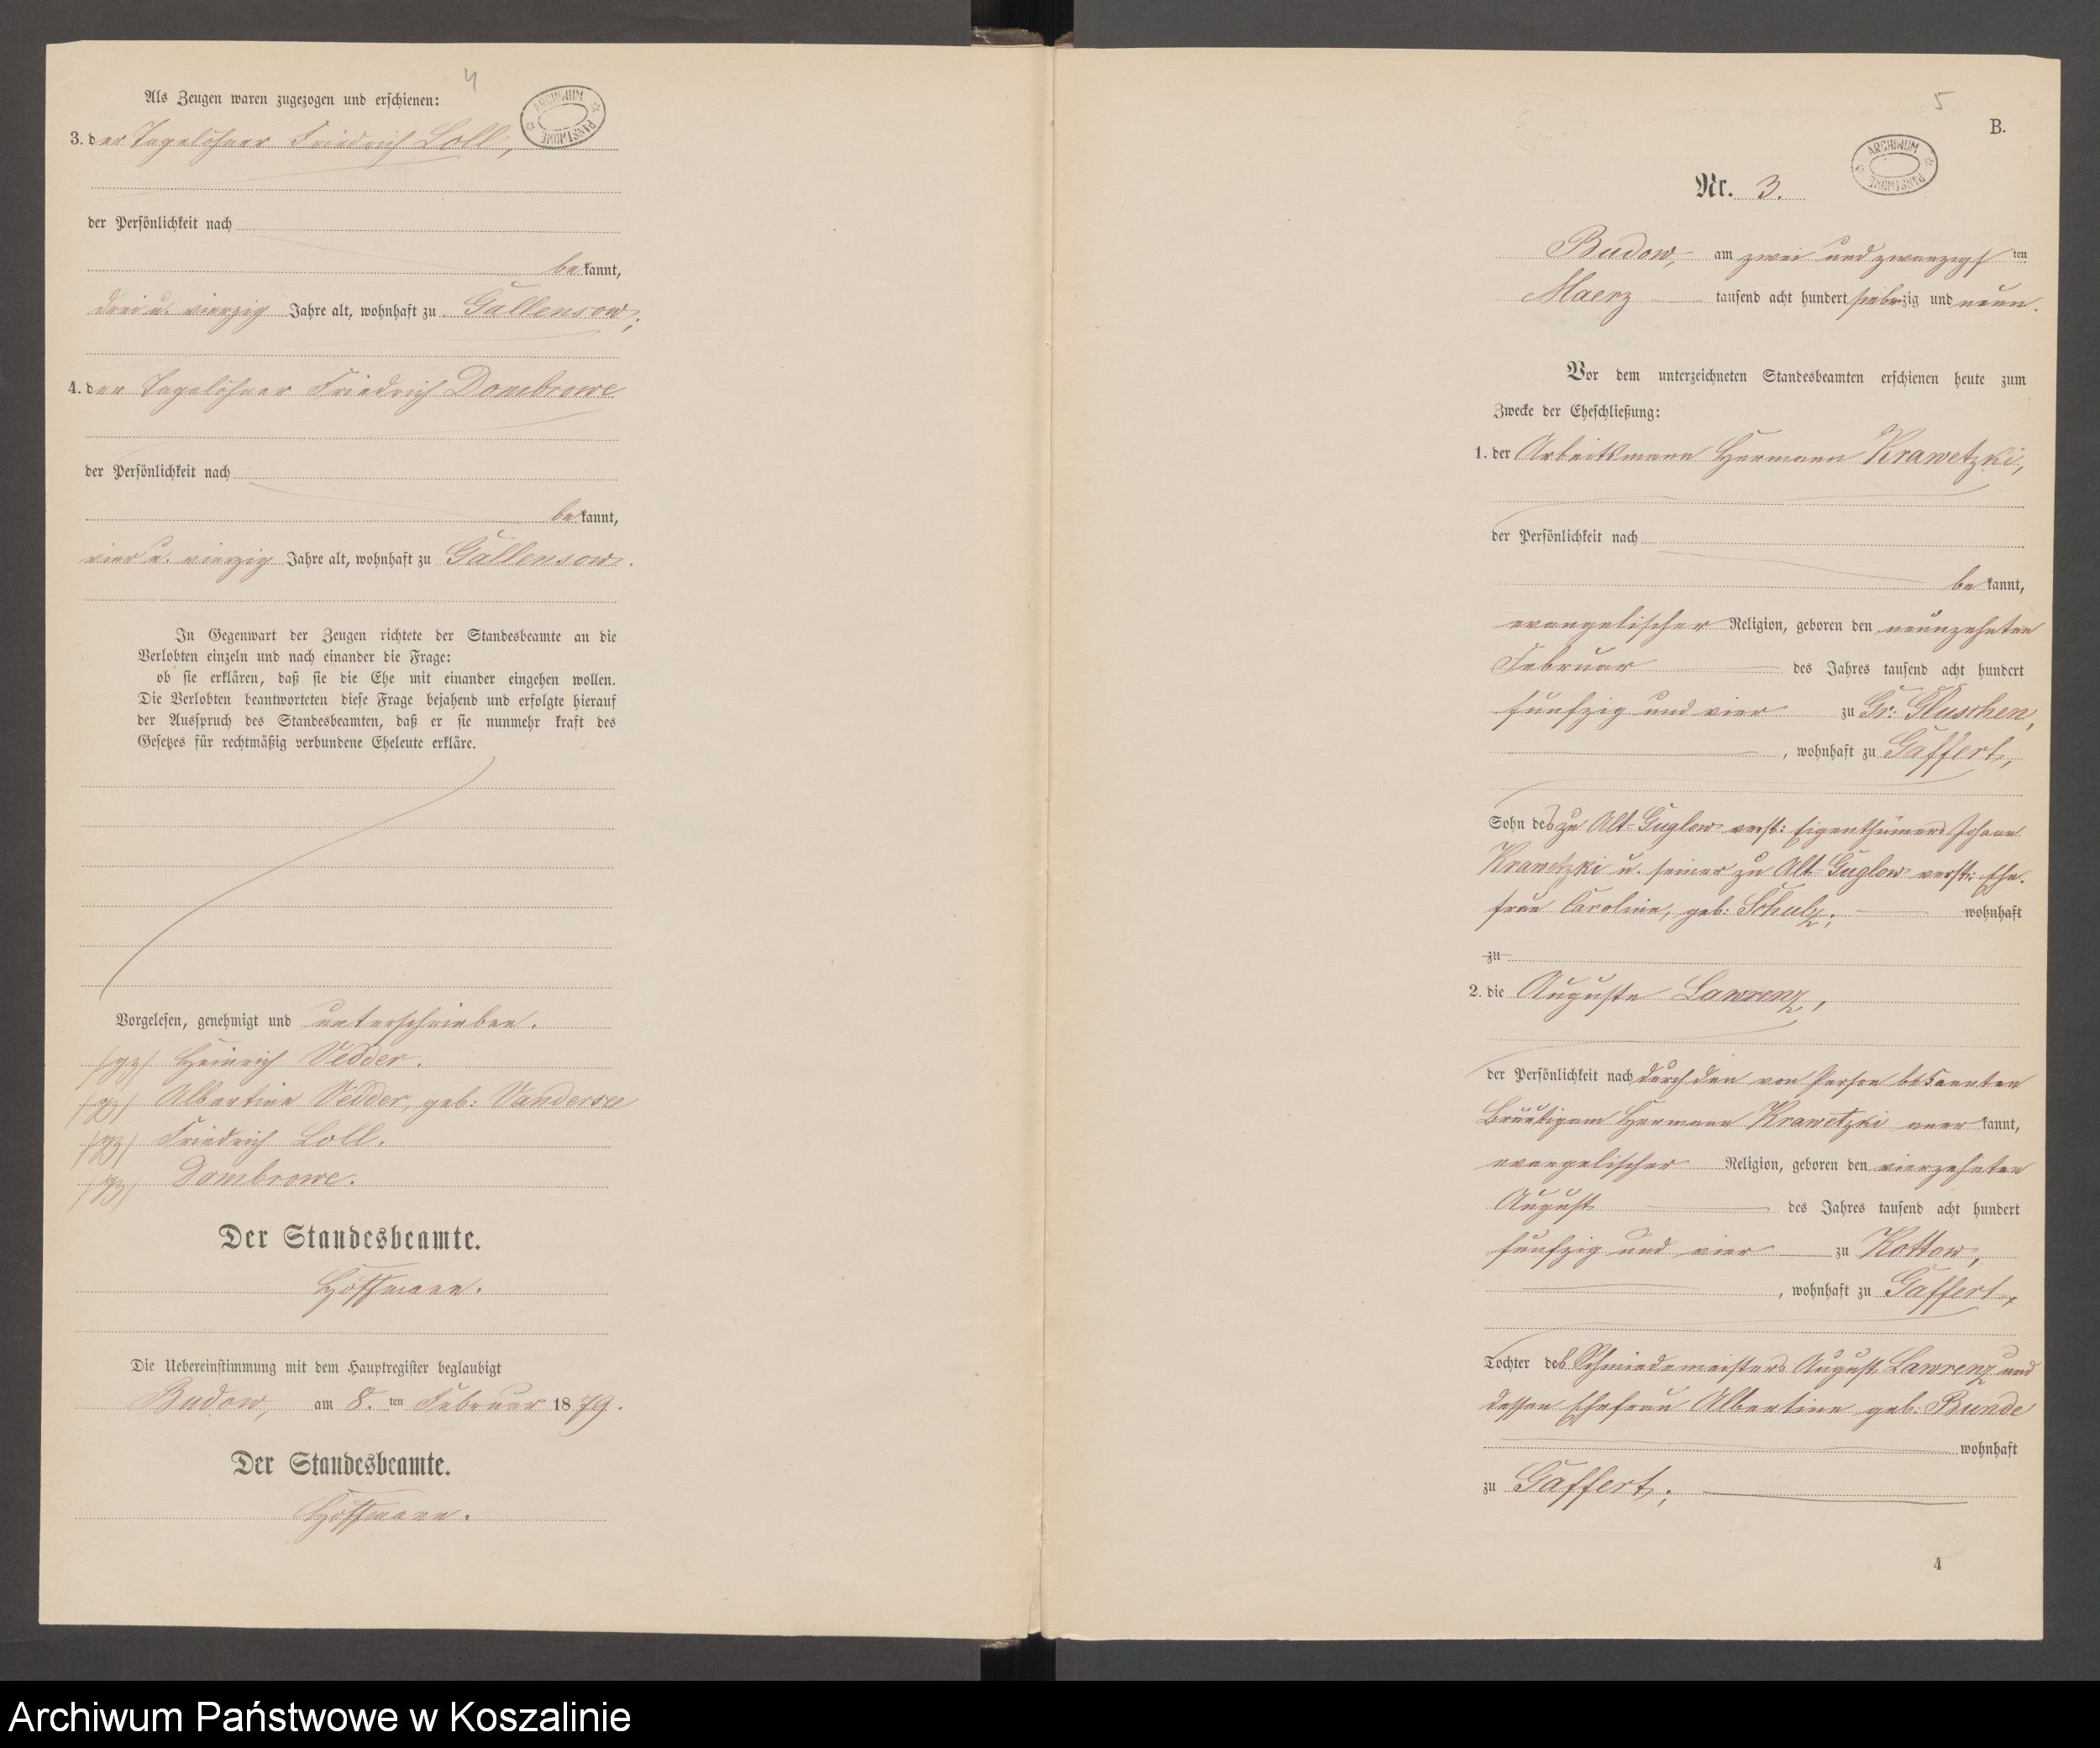 4
Als Zeugen waren zugezogen und erschienen:
ARCHIWUM PAŃSTWOWE
3. der Tagelöhner Friedrich Loll,
der Persönlichkeit nach
bekannt,
drei u. vierzig Jahre alt, wohnhaft zu Gallensow;
4. der Tagelöhner Friedrich Dombrowe
der Persönlichkeit nach
bekannt,
vier u. vierzig Jahre alt, wohnhaft zu Gallensow.
In Gegenwart der Zeugen richtete der Standesbeamte an die
Verlobten einzeln und nach einander die Frage:
ob sie erklären, daß sie die Ehe mit einander eingehen wollen.
Die Verlobten beantworteten diese Frage bejahend und erfolgte hierauf
der Ausspruch des Standesbeamten, daß er sie nunmehr kraft des
Gesetzes für rechtmäßig verbundene Eheleute erkläre.
Vorgelesen, genehmigt und unterschrieben.
(gz) Heinrich Vedder.
(gz) Albertine Vedder, geb: Vandersee
(gz) Friedrich Loll.
(gz) Dombrowe.
Der Standesbeamte.
Hoffmann.
Die Uebereinstimmung mit dem Hauptregister beglaubigt
Budow, am 8. ten Februar 1879.
Der Standesbeamte.
Hoffmann.
5
B.
ARCHIWUM PAŃSTWOWE
Nr. 3.
Budow, am zwei und zwanzigsten
Maerz tausend acht hundert siebenzig und neun.
Vor dem unterzeichneten Standesbeamten erschienen heute zum
Zwecke der Eheschließung:
1. der Arbeitsmann Hermann Krawetzki,
der Persönlichkeit nach
bekannt,
evangelischer Religion, geboren den neunzehnten
Februar des Jahres tausend acht hundert
funfzig und vier zu Gr: Gluschen,
, wohnhaft zu Gaffert,
Sohn des zu Alt-Guglow verst: Eigenthümers Johann
Krawetzki u. seiner zu Alt-Guglow verst: Ehe-
frau Caroline, geb: Schulz; wohnhaft
zu
2. die Auguste Lawrenz,
der Persönlichkeit nach durch den von Person bekannten
Bräutigam Hermann Krawetzki anerkannt,
evangelischer Religion, geboren den vierzehnten
August des Jahres tausend acht hundert
funfzig und vier zu Kottow,
, wohnhaft zu Gaffert,
Tochter des Schmiedemeisters August Lawrenz und
dessen Ehefrau Albertine geb: Bunde
wohnhaft
zu Gaffert;
4
Archiwum Państwowe w Koszalinie